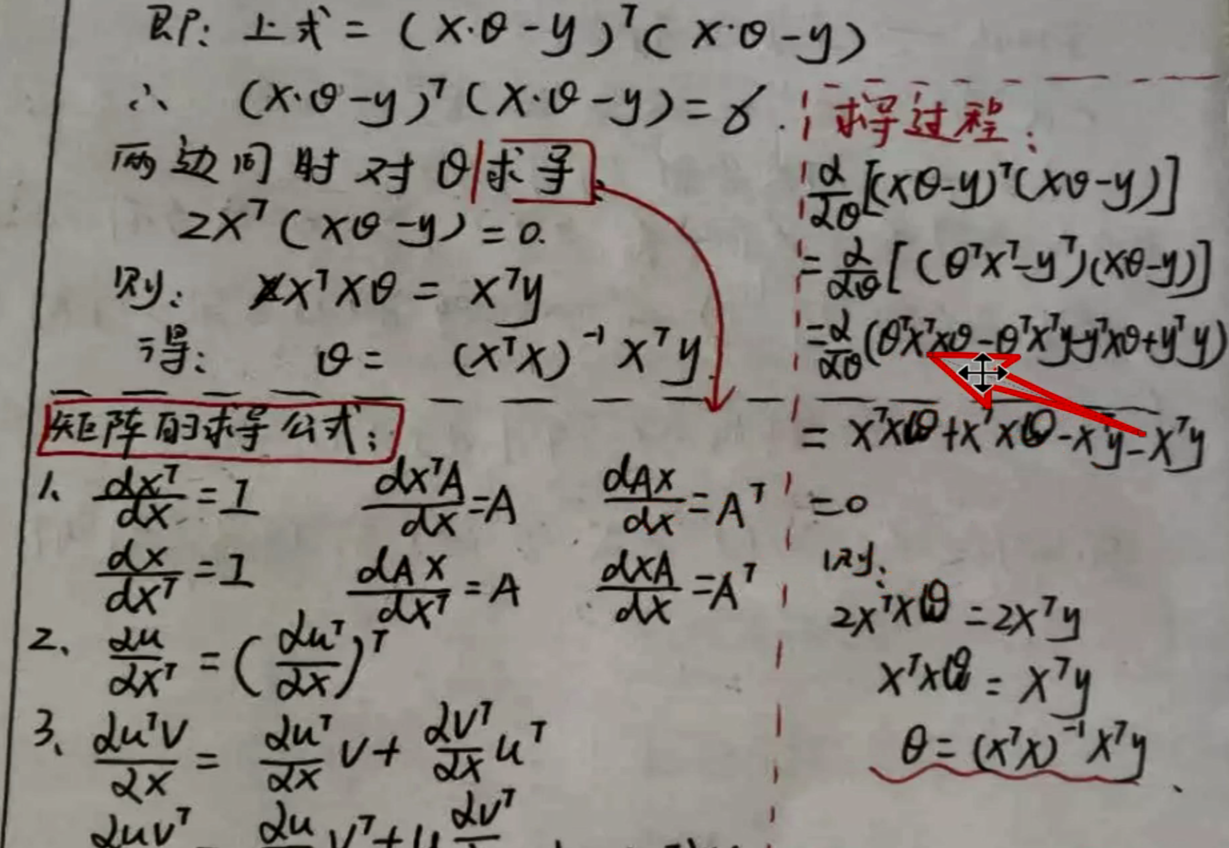 即: 上式 = (X·θ-y)ᵀ(X·θ-y)
∴ (X·θ-y)ᵀ(X·θ-y)=γ.
两边同时对θ求导
2Xᵀ(Xθ-y)=0.
则: XᵀXθ = Xᵀy
得: θ = (XᵀX)⁻¹Xᵀy.
矩阵的求导公式:
1、 dxᵀ/dx = I dxᵀA/dx = A dAx/dx = Aᵀ
dx/dxᵀ = I dAx/dxᵀ = A dxA/dx = Aᵀ
2、 ∂u/∂xᵀ = (∂uᵀ/∂x)ᵀ
3、 ∂uᵀv/∂x = ∂uᵀ/∂x v + ∂vᵀ/∂x uᵀ
∂uvᵀ ∂u vᵀ+u ∂vᵀ
求导过程:
∂/∂θ[(Xθ-y)ᵀ(Xθ-y)]
=∂/∂θ[(θᵀXᵀ-yᵀ)(Xθ-y)]
=∂/∂θ(θᵀXᵀXθ-θᵀXᵀy-yᵀXθ+yᵀy)
= XᵀXθ+XᵀXθ-Xᵀy-Xᵀy
=0
则:
2XᵀXθ = 2Xᵀy
XᵀXθ = Xᵀy
θ = (XᵀX)⁻¹Xᵀy